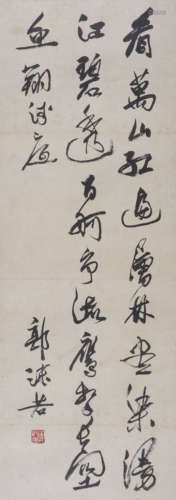 看萬山紅遍層林尽染漫
江碧透百舸争流鷹擊長空
魚翔浅底
郭沫若